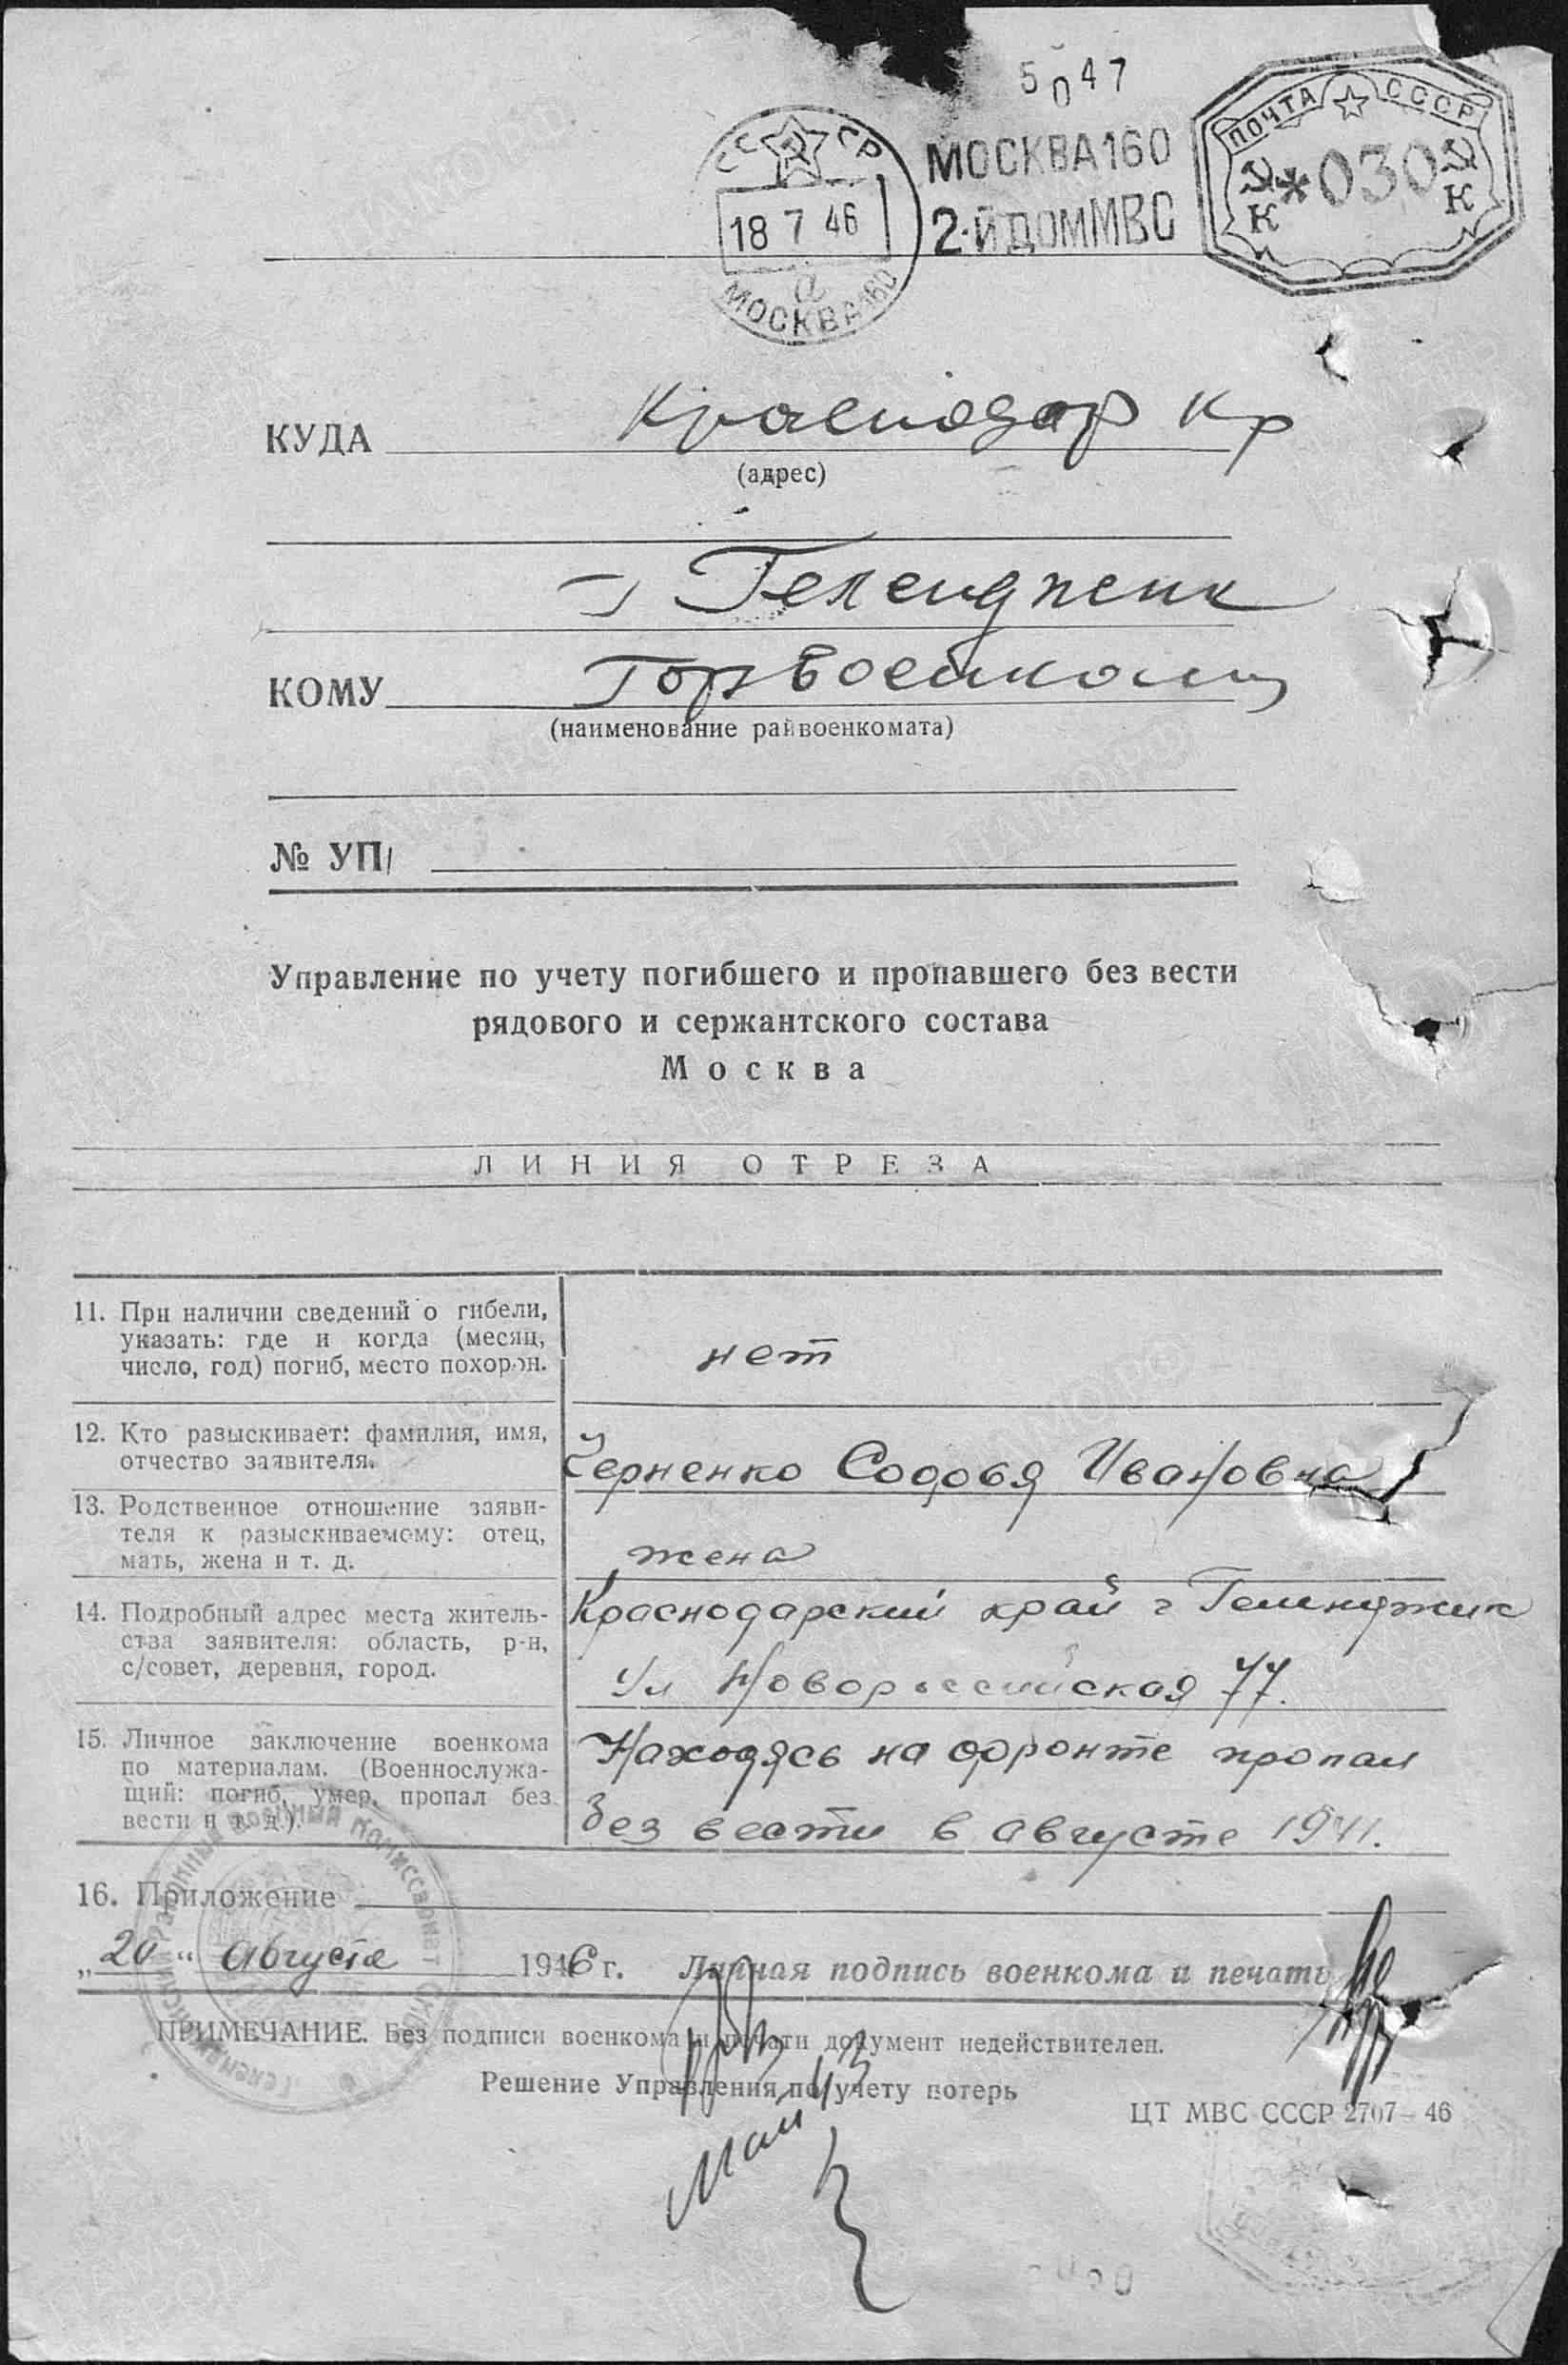 5047
СССР
МОСКВА160
2-Й ДОМ МВС
18 7 46
а
МОСКВА 160
ПОЧТА СССР
*030
К К
КУДА Краснодар Кр
(адрес)
г Геленджик
КОМУ Горвоенкому
(наименование райвоенкомата)
№ УП/
Управление по учету погибшего и пропавшего без вести
рядового и сержантского состава
Москва
ЛИНИЯ ОТРЕЗА
11. При наличии сведений о гибели,
указать: где и когда (месяц,
число, год) погиб, место похорон.
нет
12. Кто разыскивает: фамилия, имя,
отчество заявителя.
Черненко Софовя Ивановна
13. Родственное отношение заяви-
теля к разыскиваемому: отец,
мать, жена и т. д.
жена
14. Подробный адрес места житель-
ства заявителя: область, р-н,
с/совет, деревня, город.
Краснодарский край г Геленджик
Ул Новороссийская 77.
15. Личное заключение военкома
по материалам. (Военнослужа-
щий: погиб, умер, пропал без
вести и т. д.).
Находясь на фронте пропал
без вести в августе 1941.
16. Приложение
„20“ августа 1946 г. Личная подпись военкома и печать
ПРИМЕЧАНИЕ. Без подписи военкома и печати документ недействителен.
Решение Управления по учету потерь
ЦТ МВС СССР 2707—46
май 43